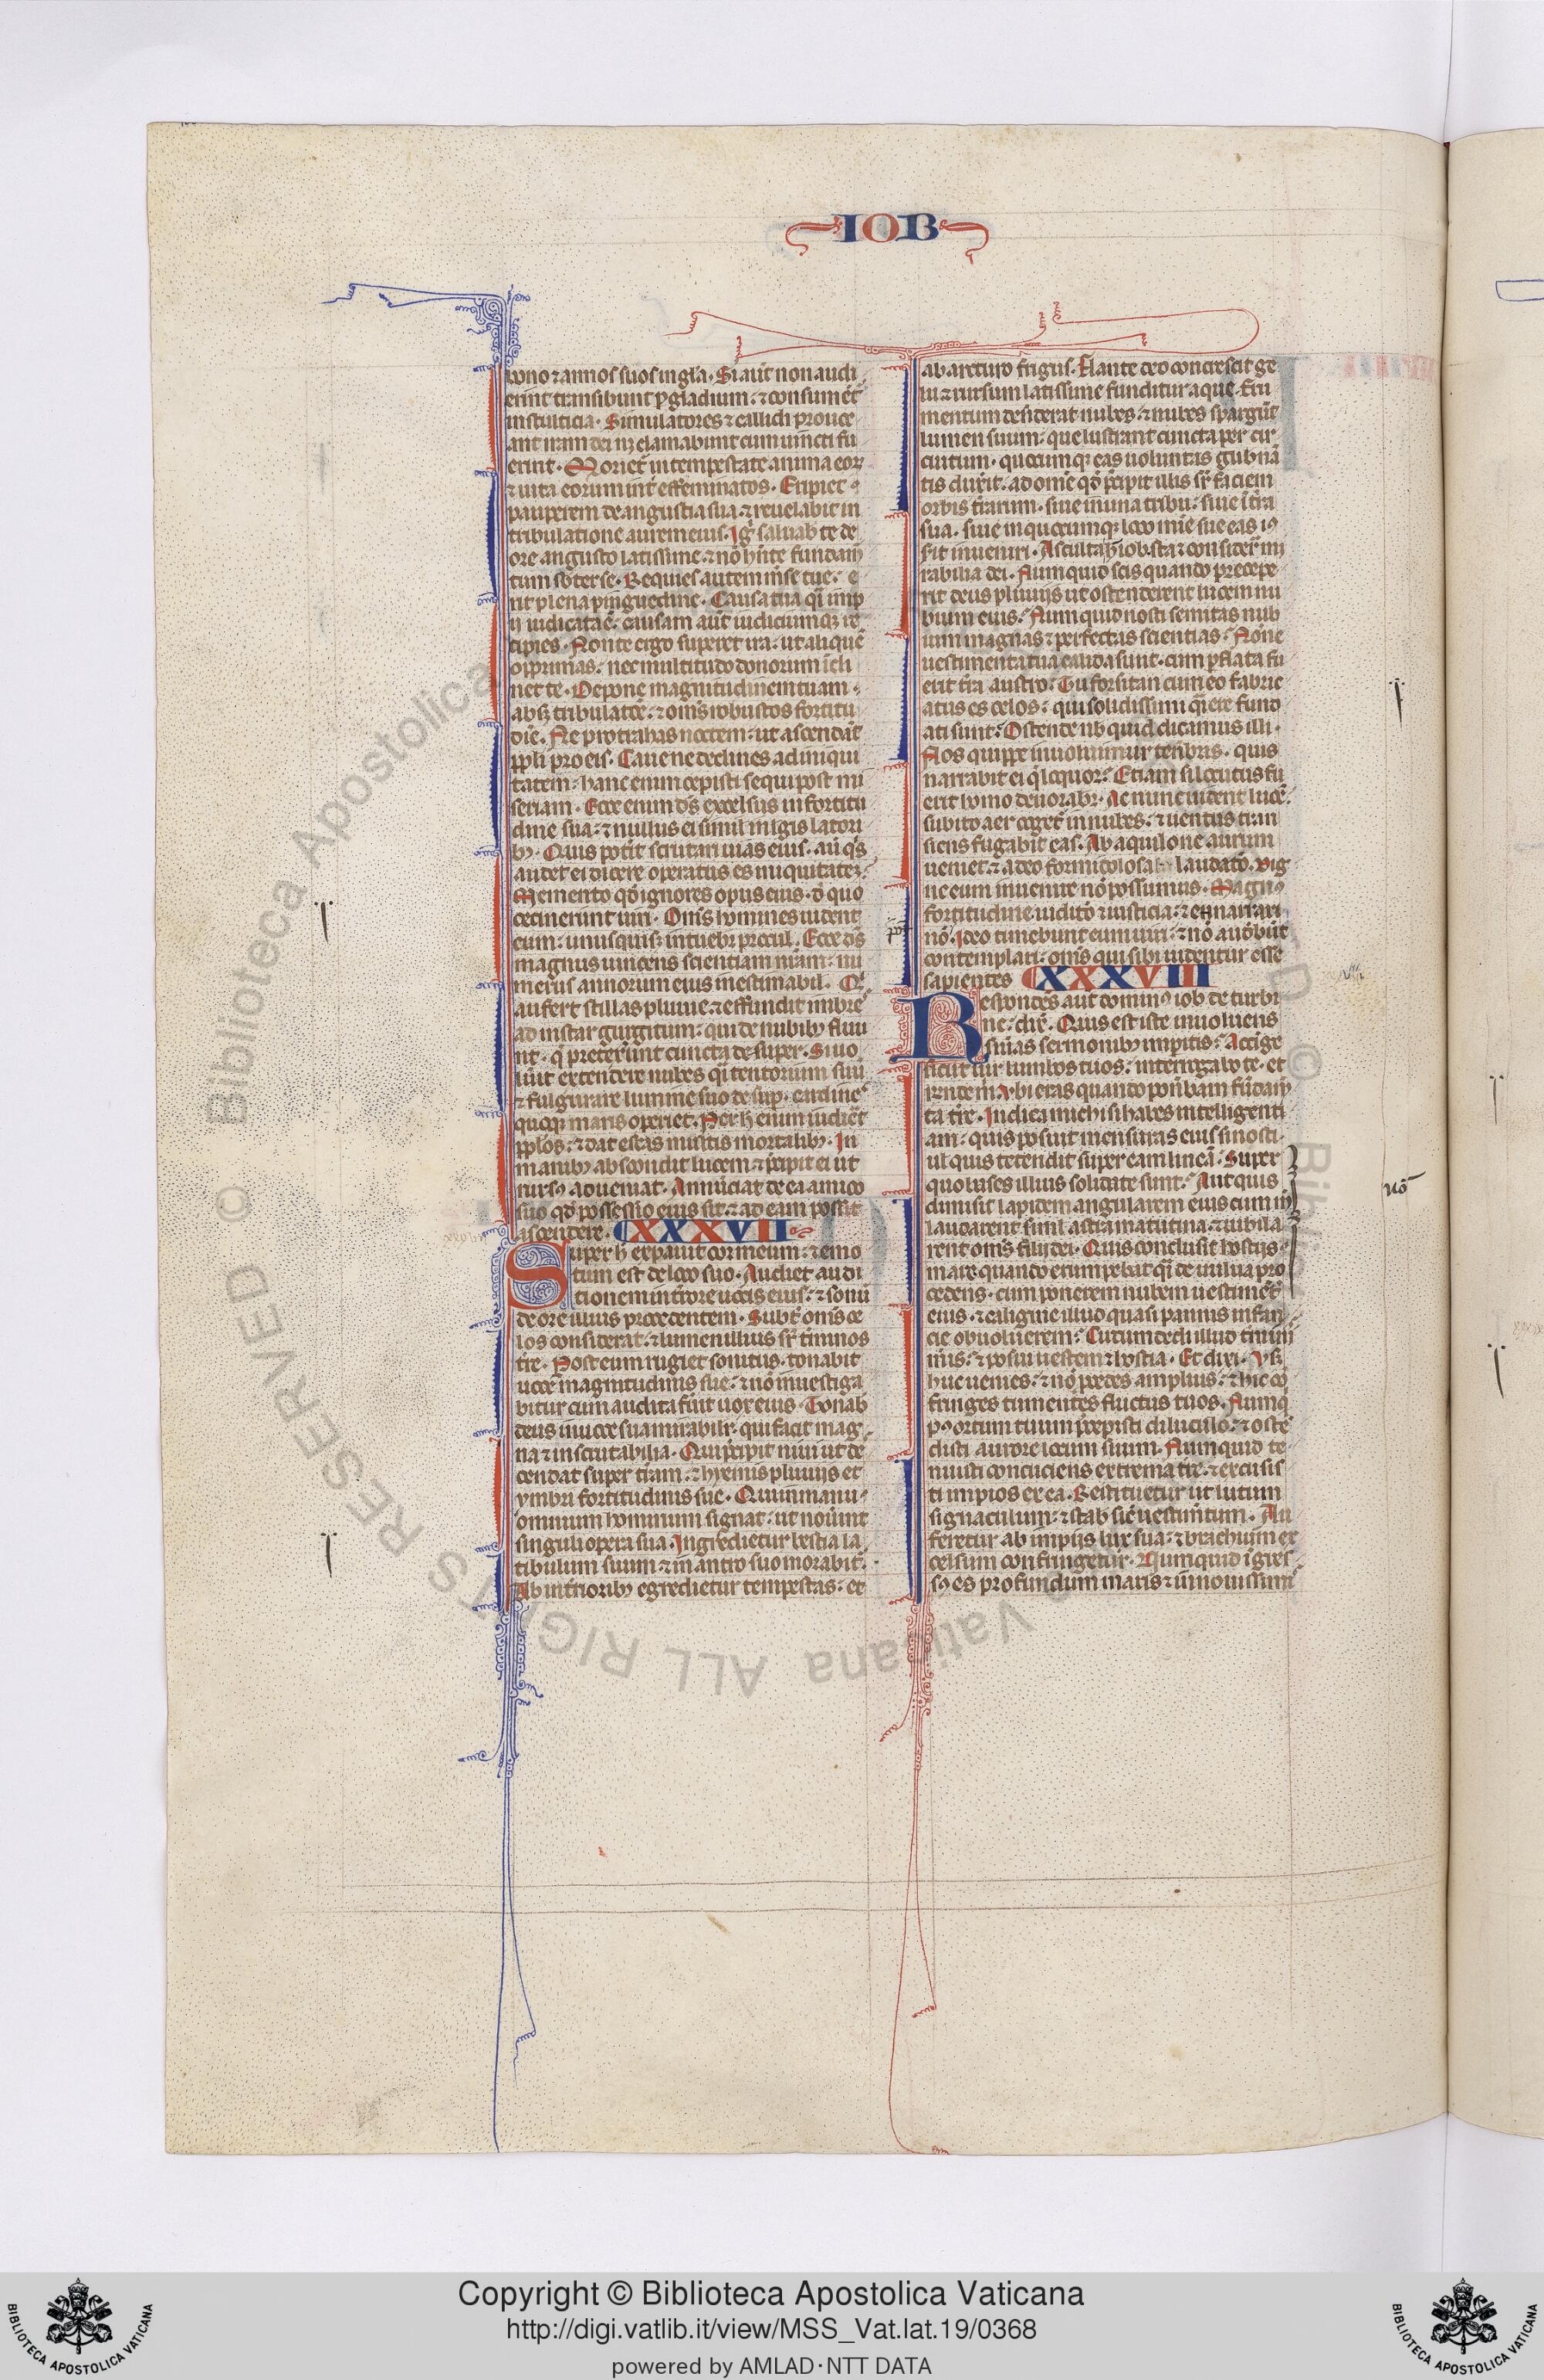 IOB
bono ⁊ annos suos in gl̄a. Si aūt non audi
erint transibunt ꝑ gladium: ⁊ consument᷑
in stulticia. Simulatores ⁊ callidi prouoc
ant iram dei nꝫ clamabunt cum uincti fu
erint. Moriet᷑ in tempestate anima eoꝝ
⁊ uita eorum int̄ effeminatos. Eripiet
pauperem de angustia sua: ⁊ reuelabit in
tribulatione aurem eius. Ig̅ saluab te de
ore angusto latissime: ⁊ nō hn̄te fundam̄
tum sbter se. Requies autem mēse tue: e
rit plena pinguedine. Causa tua qͣi imp
ij iudicata ē: causam aūt iudiciumqꝫ re
cipies. Non te ergo superet ira: ut aliquē
opprimas: nec multitudo donorum īcli
net te. Depone magnitudinem tuam
absqꝫ tribulatōe: ⁊ om̄s robustos fortitu
dīe. Ne protrahas noctem: ut ascendāt
pp̄li pro eis. Caue ne declines ad iniqui
tatem: hanc enim cepisti sequi post mi
seriam. Ecce enim ds̄ excelsus in fortitu
dine sua: ⁊ nullus ei simil in legis latori
bꝰ. Quis potit scrutari uias eius: aū qͥs
audet ei dicere operatus es iniquitatēꝫ
Memento qd̄ ignores opus eius: d̄ quo
cecinerunt uiri. Om̄s homines uident
eum: unusquisqꝫ intuebr procul. Ecce ds̄
magnus uincens scientiam nr̄am: nu
merus annorum eius inestimabil. Qͥ
aufert stillas pluuie: ⁊ effundit imbre
ad instar gurgitum: qui de nubibꝰ fluu
nt: q̄ pretexunt cuncta desuper. Si uo
lūit extendere nubes qͣi tentorium suū
⁊ fulgurare lumine suo desuꝑ: cardines
quoqꝫ maris operiet. Per h̄ enim iudicat
pp̄los: ⁊ dat escas multis mortalibꝰ. In
manibꝰ abscondit lucem: ⁊ p̄cipit ei ut
rursꝰ adueniat. Annūciat de ea amico
suo qd̄ possessio eius sit: ⁊ ad eam possit
ascendere. XXXVII
Super h̄ expauit cor meum: ⁊ emo
tum est de loco suo. Audiet audi
tionem in t̄rore uocis eius: ⁊ sonū
de ore illius procedentem. Subt̄ om̄s ce
los considerat: ⁊ lumen illius sr̄ t̄minos
tr̄e. Post eum rugiet sonitus: tonabit
uoce magnitudinis sue: ⁊ nō inuestiga
bitur cum audita fūit uox eius. Tonab
deus in uoce sua mirabilr: qui facit mag
na ⁊ inscrutabilia. Qui p̄cipit niui ut de
cendat super tr̄am: ⁊ hyemis pluuijs et
ymbri fortitudinis sue. Qui in manu
omnium hominum signat: ut nouīnt
singuli opera sua. Ingredietur bestia la
tibulum suum: ⁊ in antro suo morabit᷑.
Ab int̄ioribꝰ egredietur tempestas: et
ab arcturo frigus. Flante deo concrescit ge
lu: ⁊ rursum latissime funditur aque. Fru
mentum desiderat nubes: ⁊ nubes spargūt
lumen suum: que lustrant cuncta per cir
cuitum: quocumqꝫ eas uoluntas gub̄nā
tis duxit: ad om̄e qd̄ p̄cipit illis sr̄ faciem
orbis tr̄arum: siue in una tribu: siue ī tr̄a
sua: siue in quocumqꝫ loco mīe sue eas iꝰ
sit inueniri. Asculta h̄ iob: sta ⁊ consider̄ mi
rabilia dei. Numquid scis quando precepe
rit deus pluuijs ut ostenderent lucem nu
bium eius: Numquid nosti semitas nub
ium magnas ⁊ perfectas scientias: Nōne
uestimenta tua calida sunt: cum ꝑflata fu
erit tr̄a austro: Tu forsitan cum eo fabric
atus es celos: qui solidissimi qͣi ere fund
ati sunt: Ostende nb quid dicamus illi:
Nos quippe inuoluimur teneb̄ris. quis
narrabit ei q̄ loquor: Etiam si locutus fu
erit homo deuorabr. Ac nunc uident lucē:
subito aer coget᷑ in nubes: ⁊ uentus tran
siens fugabit eas. Ab aquilone aurum
ueniet: ⁊ a deo formidolosa laudatō. dig
ne eum inuenire nō possumus. Magnꝰ
fortitudine iuditō ⁊ iusticia: ⁊ enarrari
nō. Ideo timebunt eum uiri: ⁊ nō audebūt
contemplari: om̄s qui sibi uidentur esse
sapientes XXXVIII
Respondēs aūt dominꝰ iob de turbi
ne: dix̄. Quis est iste inuoluens
sn̄ias sermonibꝰ imperitis: Accige
sicut uir lumbos tuos: interrogabo te: et
rn̄de m̄. Vbi eras quando ponebam fūdam̄
ta tr̄e. Indica michi si habes intelligenti
am: quis posuit mensuras eius si nosti:
ul̄ quis tetendit super eam lineā. Super
quo bases illius solidate sunt: Aut quis
dimisit lapidem angularem eius cum m̄
laudarent siml̄ astra matutina: ⁊ iubila
rent om̄s filij dei. Quis conclusit hostijs
mare: quando erumpebat qͣi de uulua pro
cedens: cum ponerem nubem uestim̄tꝫ
eius: ⁊ caligine illud quasi pannis infan
cie obuoluerem: Circumdedi illud t̄minis
m̄is: ⁊ posui uectem ⁊ hostia. Et dixi. Vsqꝫ
huc uenies: ⁊ nō procedes amplius: ⁊ hic cō
fringes tumentes fluctus tuos. Numq̄
pꝰ ortum tuum p̄cepisti diluculo: ⁊ oste
disti aurore locum suum. Numquid te
nuisti concuciens extrema tr̄e: ⁊ excussis
ti impios ex ea. Restituetur ut lutum
signaculum: ⁊ stab sic̄ uestim̄tum. Au
feretur ab impijs lux sua: ⁊ brachium ex
celsum confringetur. Numquid īgres
sꝰ es profundum maris: ⁊ in nouissimī
nō
Copyright © Biblioteca Apostolica Vaticana
http://digi.vatlib.it/view/MSS_Vat.lat.19/0368
powered by AMLAD·NTT DATA
BIBLIOTECA APOSTOLICA VATICANA
BIBLIOTECA APOSTOLICA VATICANA
© Biblioteca Apostolica Vaticana ALL RIGHTS RESERVED